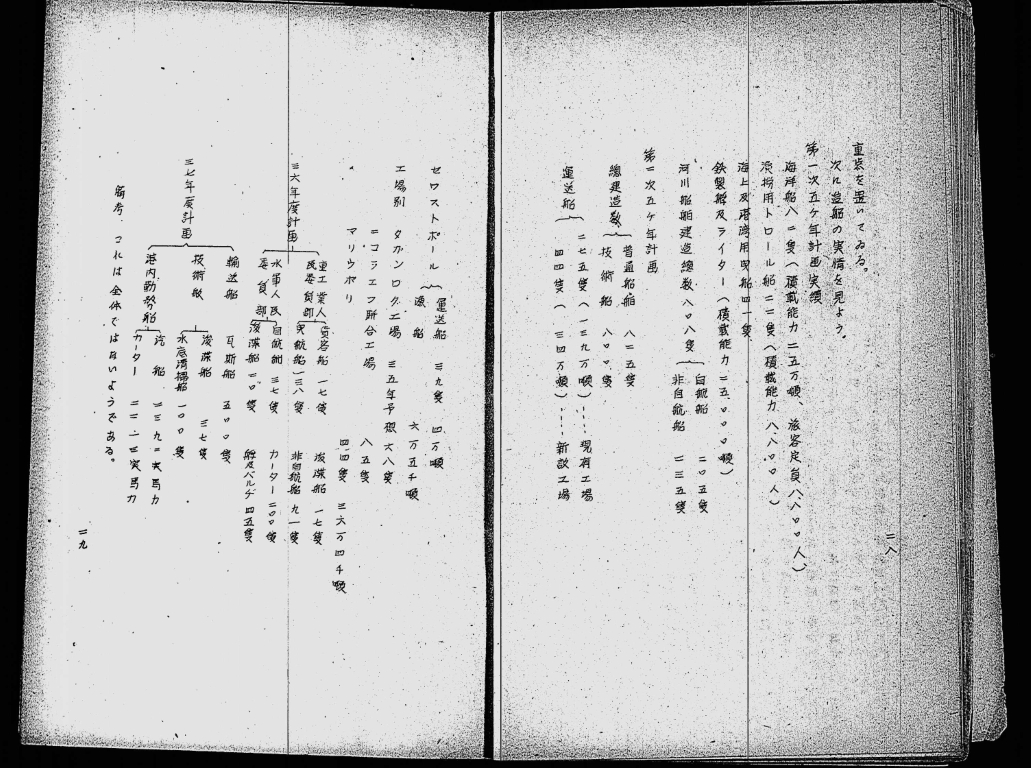 重点を置いてゐる。
次に造船の実情を見よう。
第一次五ケ年計画実績
海洋船八二隻（積載能力二五万噸、旅客定員八八〇〇人）
漁撈用トロール船二二隻（積載能力八、八〇〇人）
海上及港湾用曳船四一隻
鉄製艀及ライター（積載能力二五、〇〇〇噸）
河川船舶建造総数八〇八隻
自航船 二〇五隻
非自航船 二三五隻
第二次五ケ年計画
総建造数
普通船舶 八二五隻
技術船 八〇〇隻
運送船
二七五隻（一三九万噸）……現有工場
四四隻（三四万噸）……新設工場
二八
セワストポール
運送船 三九隻 四万噸
漁船 六万五千噸
工場別 タガンログ工場 三五年予想六八隻
〃 ニコラエフ聯合工場 八五隻
〃 マリウポリ 四四隻 三六万四千噸
三六年度計画
重工業人民委員部
貨客船 一七隻 浚渫船 一七隻
自航船 一三八隻 非自航船 九一隻
水運人民委員部
自航船 三七隻 カーター 二〇〇隻
浚渫船 二〇隻 艀及バルヂ 四五隻
三七年度計画
輸送船 瓦斯船 五〇〇隻
技術船 浚渫船 三七隻
水底清掃船 一〇〇隻
港内勤務船 汽船 二三九二実馬力
カーター 二二一二実馬力
備考 これは全体ではないようである。
二九